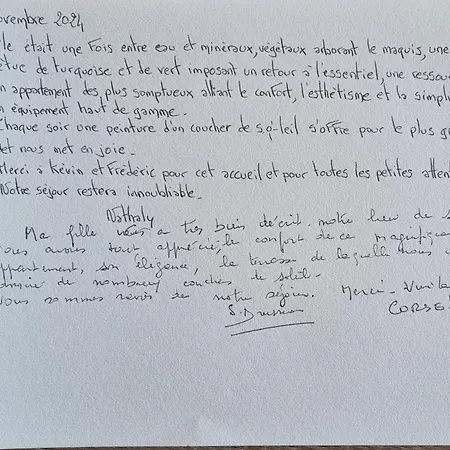 ovembre 2024
le était une fois entre eau et minéraux, végétaux arborant le maquis, une
tue de turquoise et de vert imposant un retour à l'essentiel, une ressou
n appartement des plus somptueux alliant le confort, l'esthétisme et la simpli
n équipement haut de gamme.
Chaque soir une peinture d'un coucher de soleil s'offre pour le plus g
et nous met en joie.
Merci à Kévin et Frédéric pour cet accueil et pour toutes les petites atten
Notre séjour restera innoubliable.
Nathaly
Ma fille vous a très bien décrit notre lieu de s
ous avons tout apprécié, le confort de ce magnifique
ppartement, son élégance, la terrasse de laquelle nous
de nombreux couchés de soleil.
ous sommes ravis de notre séjour. Merci
CORSE